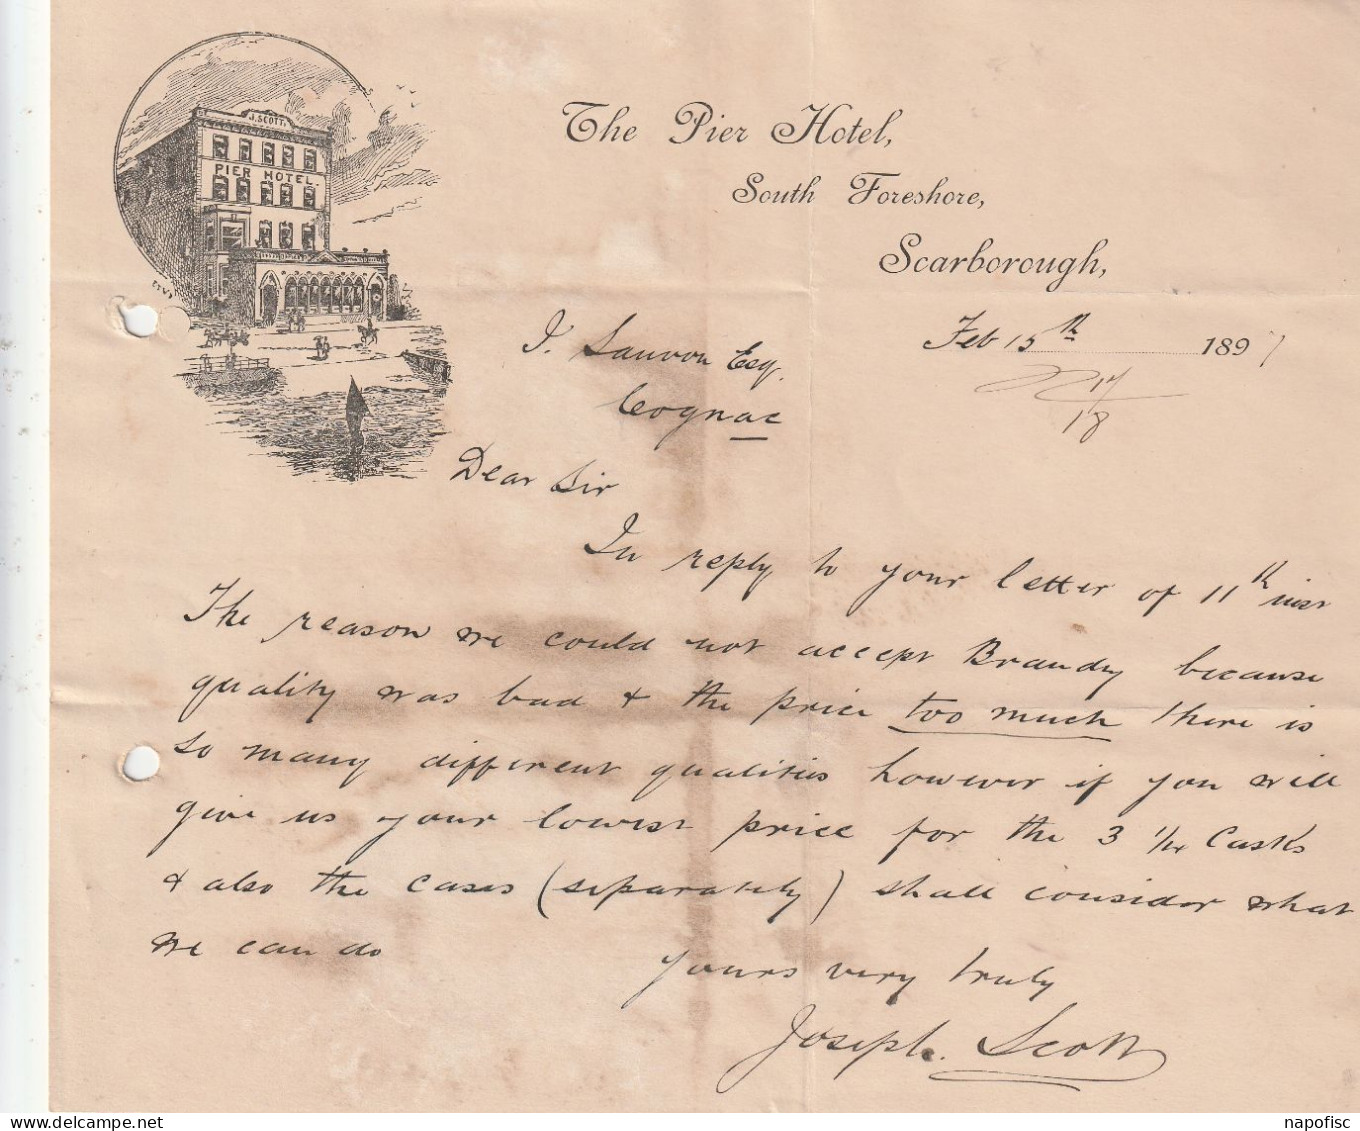 J. SCOTT.
PIER HOTEL.
The Pier Hotel,
South Foreshore,
Scarborough,
Feb 15th 1897
17
18
J. Sauvon Esq.
Cognac
Dear Sir
In reply to your letter of 11th inst
The reason we could not accept Brandy because
quality was bad & the price too much there is
so many different qualities however if you will
give us your lowest price for the 3 1/4 Casks
& also the cases (separately) shall consider what
we can do
yours very truly
Joseph Scott
napofisc